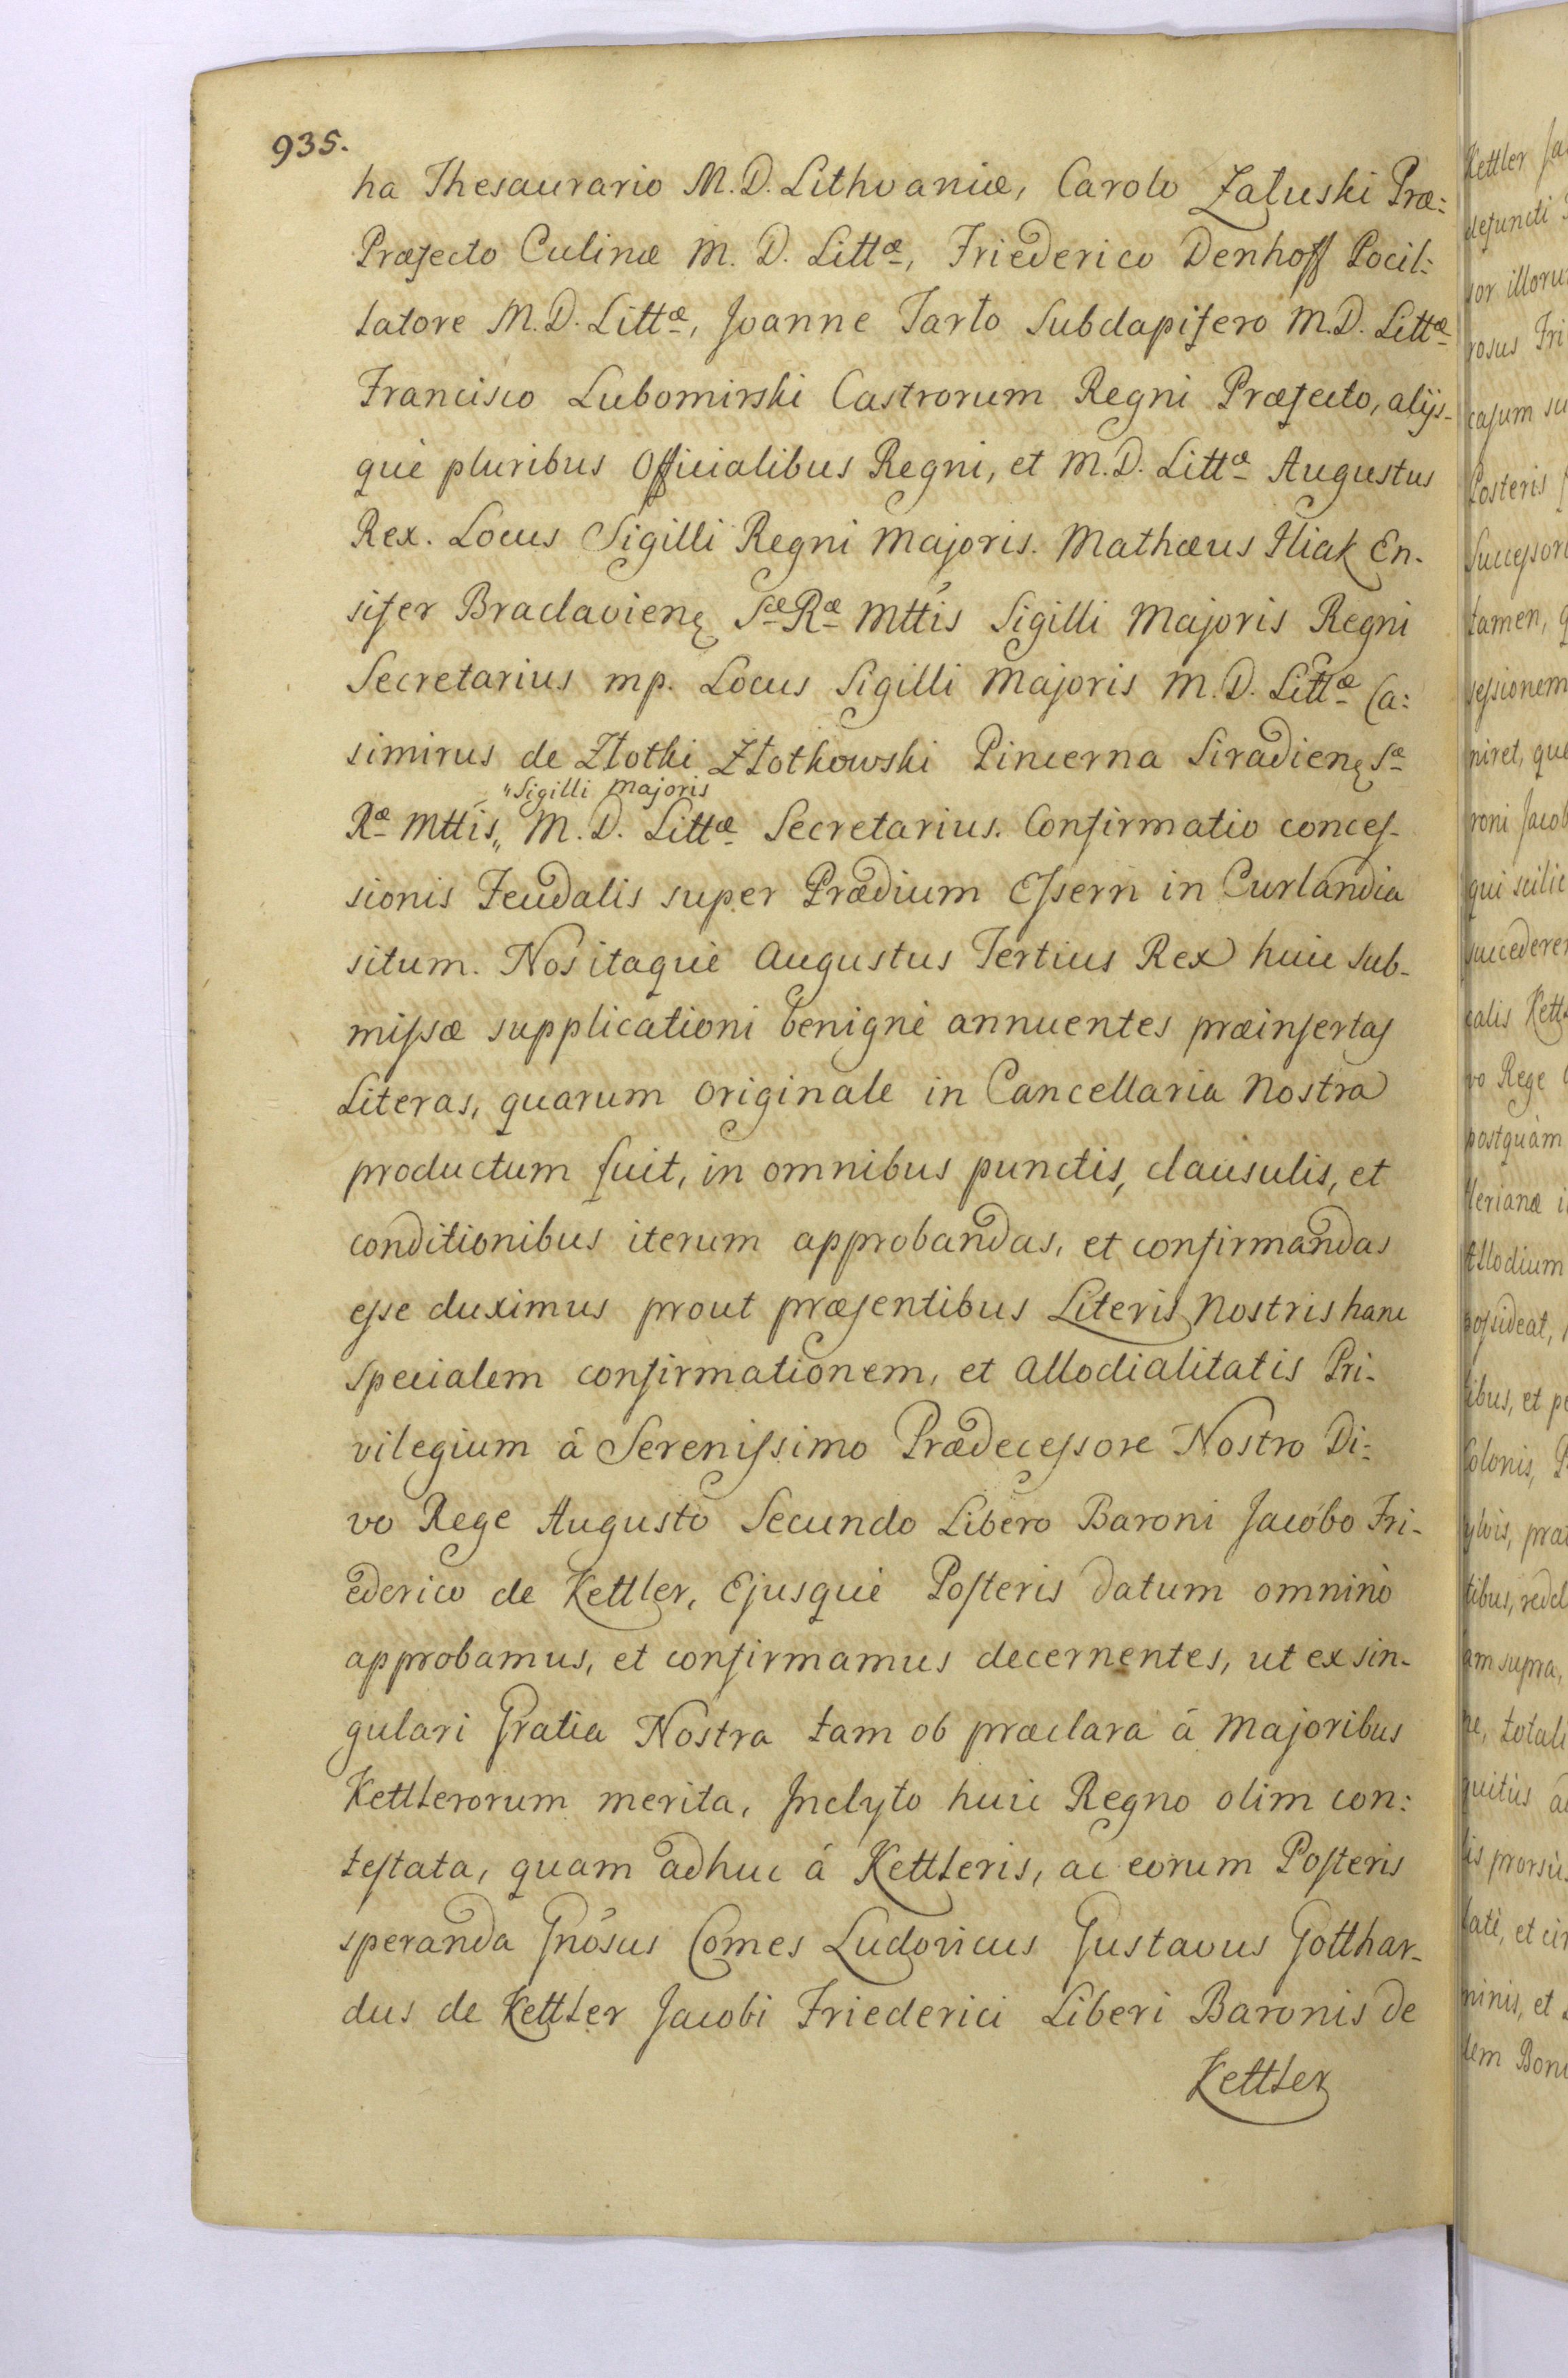 935.
ha Thesaurario M. D. Lithvaniæ, Carolo Załuski Præ:
Præfecto Culinæ M. D. Littæ, Friederico Denhoff Pocil:
latore M. D. Littæ, Joanne Tarło Subdapifero M. D. Littæ
Francisco Lubomirski Castrorum Regni Præfecto, alijs-
què pluribus Officialibus Regni, et M. D. Littæ Augustus
Rex. Locus Sigilli Regni Majoris. Mathæus Iliak En-
sifer Braclavienę Sæ Ræ Mttis Sigilli Majoris Regni
Secretarius mp. Locus Sigilli Majoris M. D. Littæ Ca:
simirus de Złotki Złotkowski Pincerna Siradienę Sæ
"Sigilli Majoris
Ræ Mttis,, M. D. Littæ Secretarius. Confirmatio conces-
sionis Feudalis super Prædium Essern in Curlandia
situm. Nos itaquè Augustus Tertius Rex huic sub-
missæ supplicationi benignè annuentes præinsertas
Literas, quarum Originale in Cancellaria Nostra
productum fuit, in omnibus punctis, clausulis, et
conditionibus iterum approbandas, et confirmandas
esse duximus prout præsentibus Literis Nostris hanc
specialem confirmationem, et Allodialitatis Pri-
vilegium á Serenissimo Prædecessore Nostro Di-
vo Rege Augusto Secundo Libero Baroni Jacobo Fri-
ederico de Kettler, Ejusquè Posteris datum omninò
approbamus, et confirmamus decernentes, ut ex sin-
gulari Gratia Nostra tam ob præclara á Majoribus
Kettlerorum merita, Inclyto huic Regno olim con:
testata, quam adhuc á Kettleris, ac eorum Posteris
speranda Gnõsus Comes Ludovicus Gustavus Gotthar-
dus de Kettler Jacobi Friederici Liberi Baronis de
Kettler